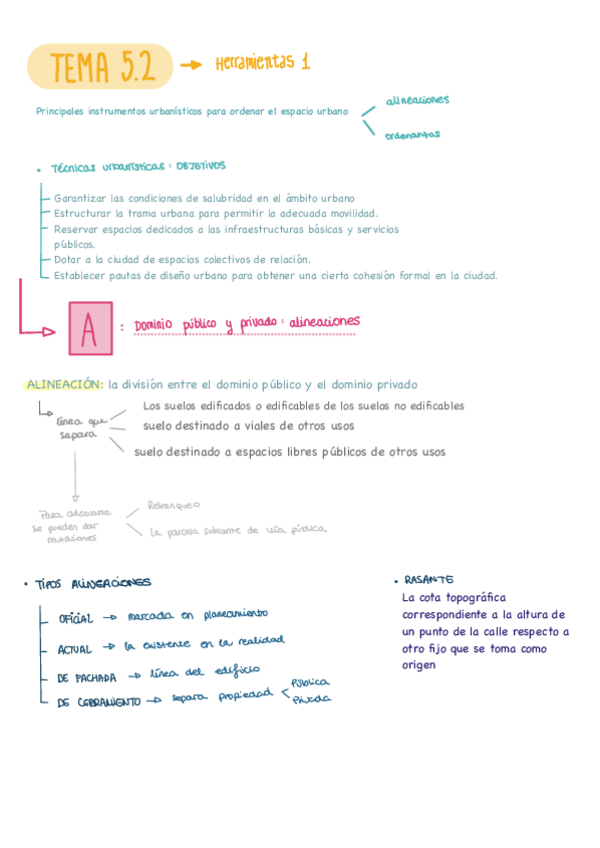 TEMA 5.2 → Herramientas 1
Principales instrumentos urbanísticos para ordenar el espacio urbano
alineaciones
ordenanzas
• Técnicas urbanísticas: OBJETIVOS
Garantizar las condiciones de salubridad en el ámbito urbano
Estructurar la trama urbana para permitir la adecuada movilidad.
Reservar espacios dedicados a las infraestructuras básicas y servicios
públicos.
Dotar a la ciudad de espacios colectivos de relación.
Establecer pautas de diseño urbano para obtener una cierta cohesión formal en la ciudad.
A : Dominio público y privado: alineaciones
ALINEACIÓN: la división entre el dominio público y el dominio privado
línea que
separa
Los suelos edificados o edificables de los suelos no edificables
suelo destinado a viales de otros usos
suelo destinado a espacios libres públicos de otros usos
Para adecuarse
se pueden dar
mutaciones
Retranqueo
La parcela sobrante de vía pública
• TIPOS ALINEACIONES
OFICIAL → marcada en planeamiento
ACTUAL → la existente en la realidad
DE FACHADA → línea del edificio
DE CERRAMIENTO → separa propiedad
Pública
Privada
• RASANTE
La cota topográfica
correspondiente a la altura de
un punto de la calle respecto a
otro fijo que se toma como
origen